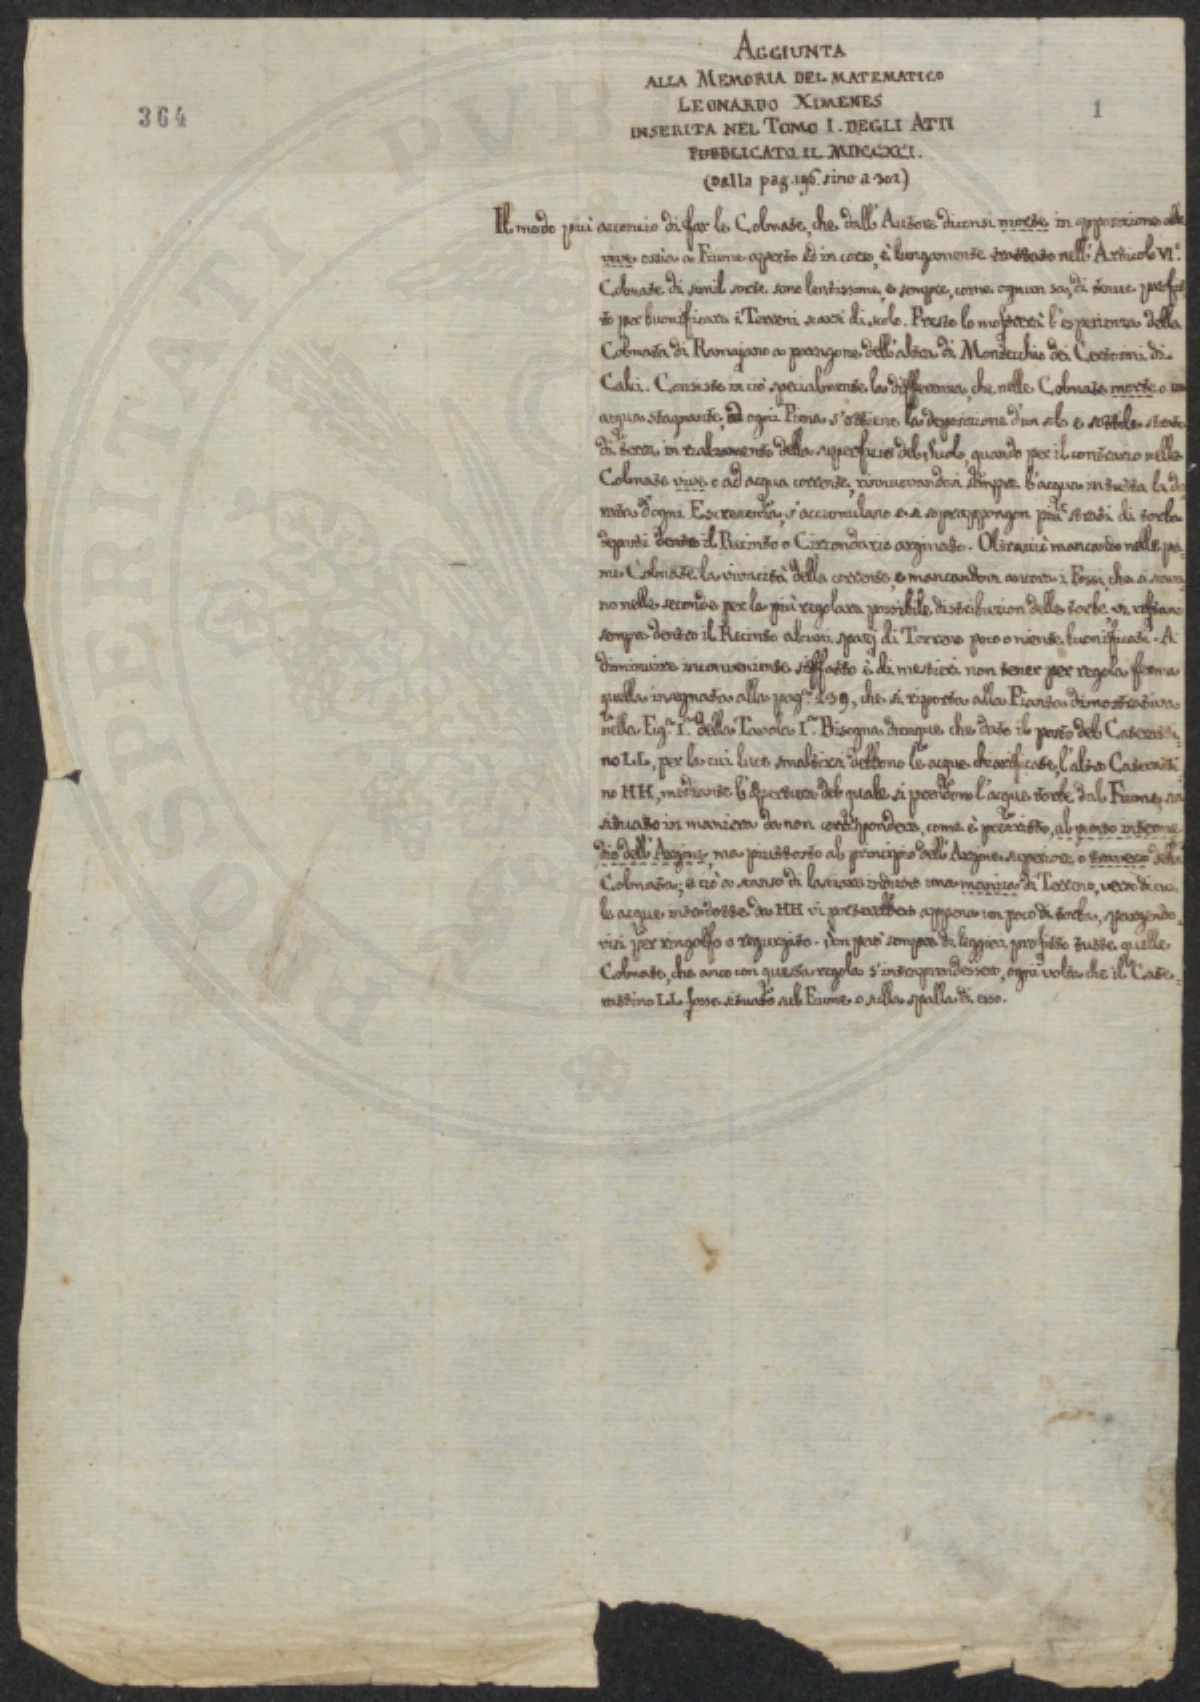 AGGIUNTA
ALLA MEMORIA DEL MATEMATICO
LEONARDO XIMENES
INSERITA NEL TOMO I. DEGLI ATTI
PUBBLICATO IL MDCCXCI.
364
1
(Dalla pag. sino a 302)
Il modo più acconcio di far le Colmate, che dall' Autore diconsi morte in opposizione alle
vive ossia a Fiume aperto ed in corso, è lungamente trattato nell' Articolo VI.
Colmate di simil sorte sono lentissime, e sempre, come ognun sa, di tenue profit
to per buonificare i Terreni scarsi di scolo. Presto lo mostrerà l'esperienza della
Colmata di Ramajano a paragone dell' altra di Montecchio dei Certosini di
Calci. Consiste in ciò specialmente la differenza, che nelle Colmate morte o
acqua stagnante, ad ogni Piena s'ottiene la deposizione d'un solo e sottile
di terra in rialzamento della superficie del suolo, quando per il contrario nelle
Colmate vive o ad acqua corrente, rinnuovandosi sempre l'acqua in tutta la du
rata d'ogni Escrescenza, s'accumulano e si soprappongon più strati di torba
deposti dentro il Recinto o Circondario arginato. Oltracciò mancando nelle pri
me Colmate la vivacità della corrente, e mancandovi ancora i Fossi, che si
no nelle seconde per la più regolare possibile distribuzion delle torbe, vi restano
sempre dentro il Recinto alcuni spazj di Terreno poco o niente buonificati. A
diminuire inconveniente siffatto è di mestieri non tener per regola ferma
quella insegnata alla pag. 239, che si riporta alla Pianta dimostrativa
nella Fig. I. della Tavola I. Bisogna dunque che dato il posto del Cateratti
no LL, per la cui luce smaltirsi debbono le acque chiarificate, l'altro Cateratti
no HH, mediante l'apertura del quale si prendono l'acque torbe dal Fiume, sia
situato in maniera da non corrispondere, come è prescritto, al punto interme
dio dell' Argine, ma piuttosto al principio dell' Argine superiore o traverso della
Colmata; e ciò a scanso di lasciare indietro una manica di Terreno, verso di cui
le acque introdotte da HH vi porterebbero appena un poco di torba, spargendo
visi per ringolfo o regurgito. Son però sempre di leggier profitto tutte quelle
Colmate, che anco con questa regola s'intraprendessero, ogni volta che il Cate
rattino LL fosse situato sul Fiume o sulla spalla di esso.